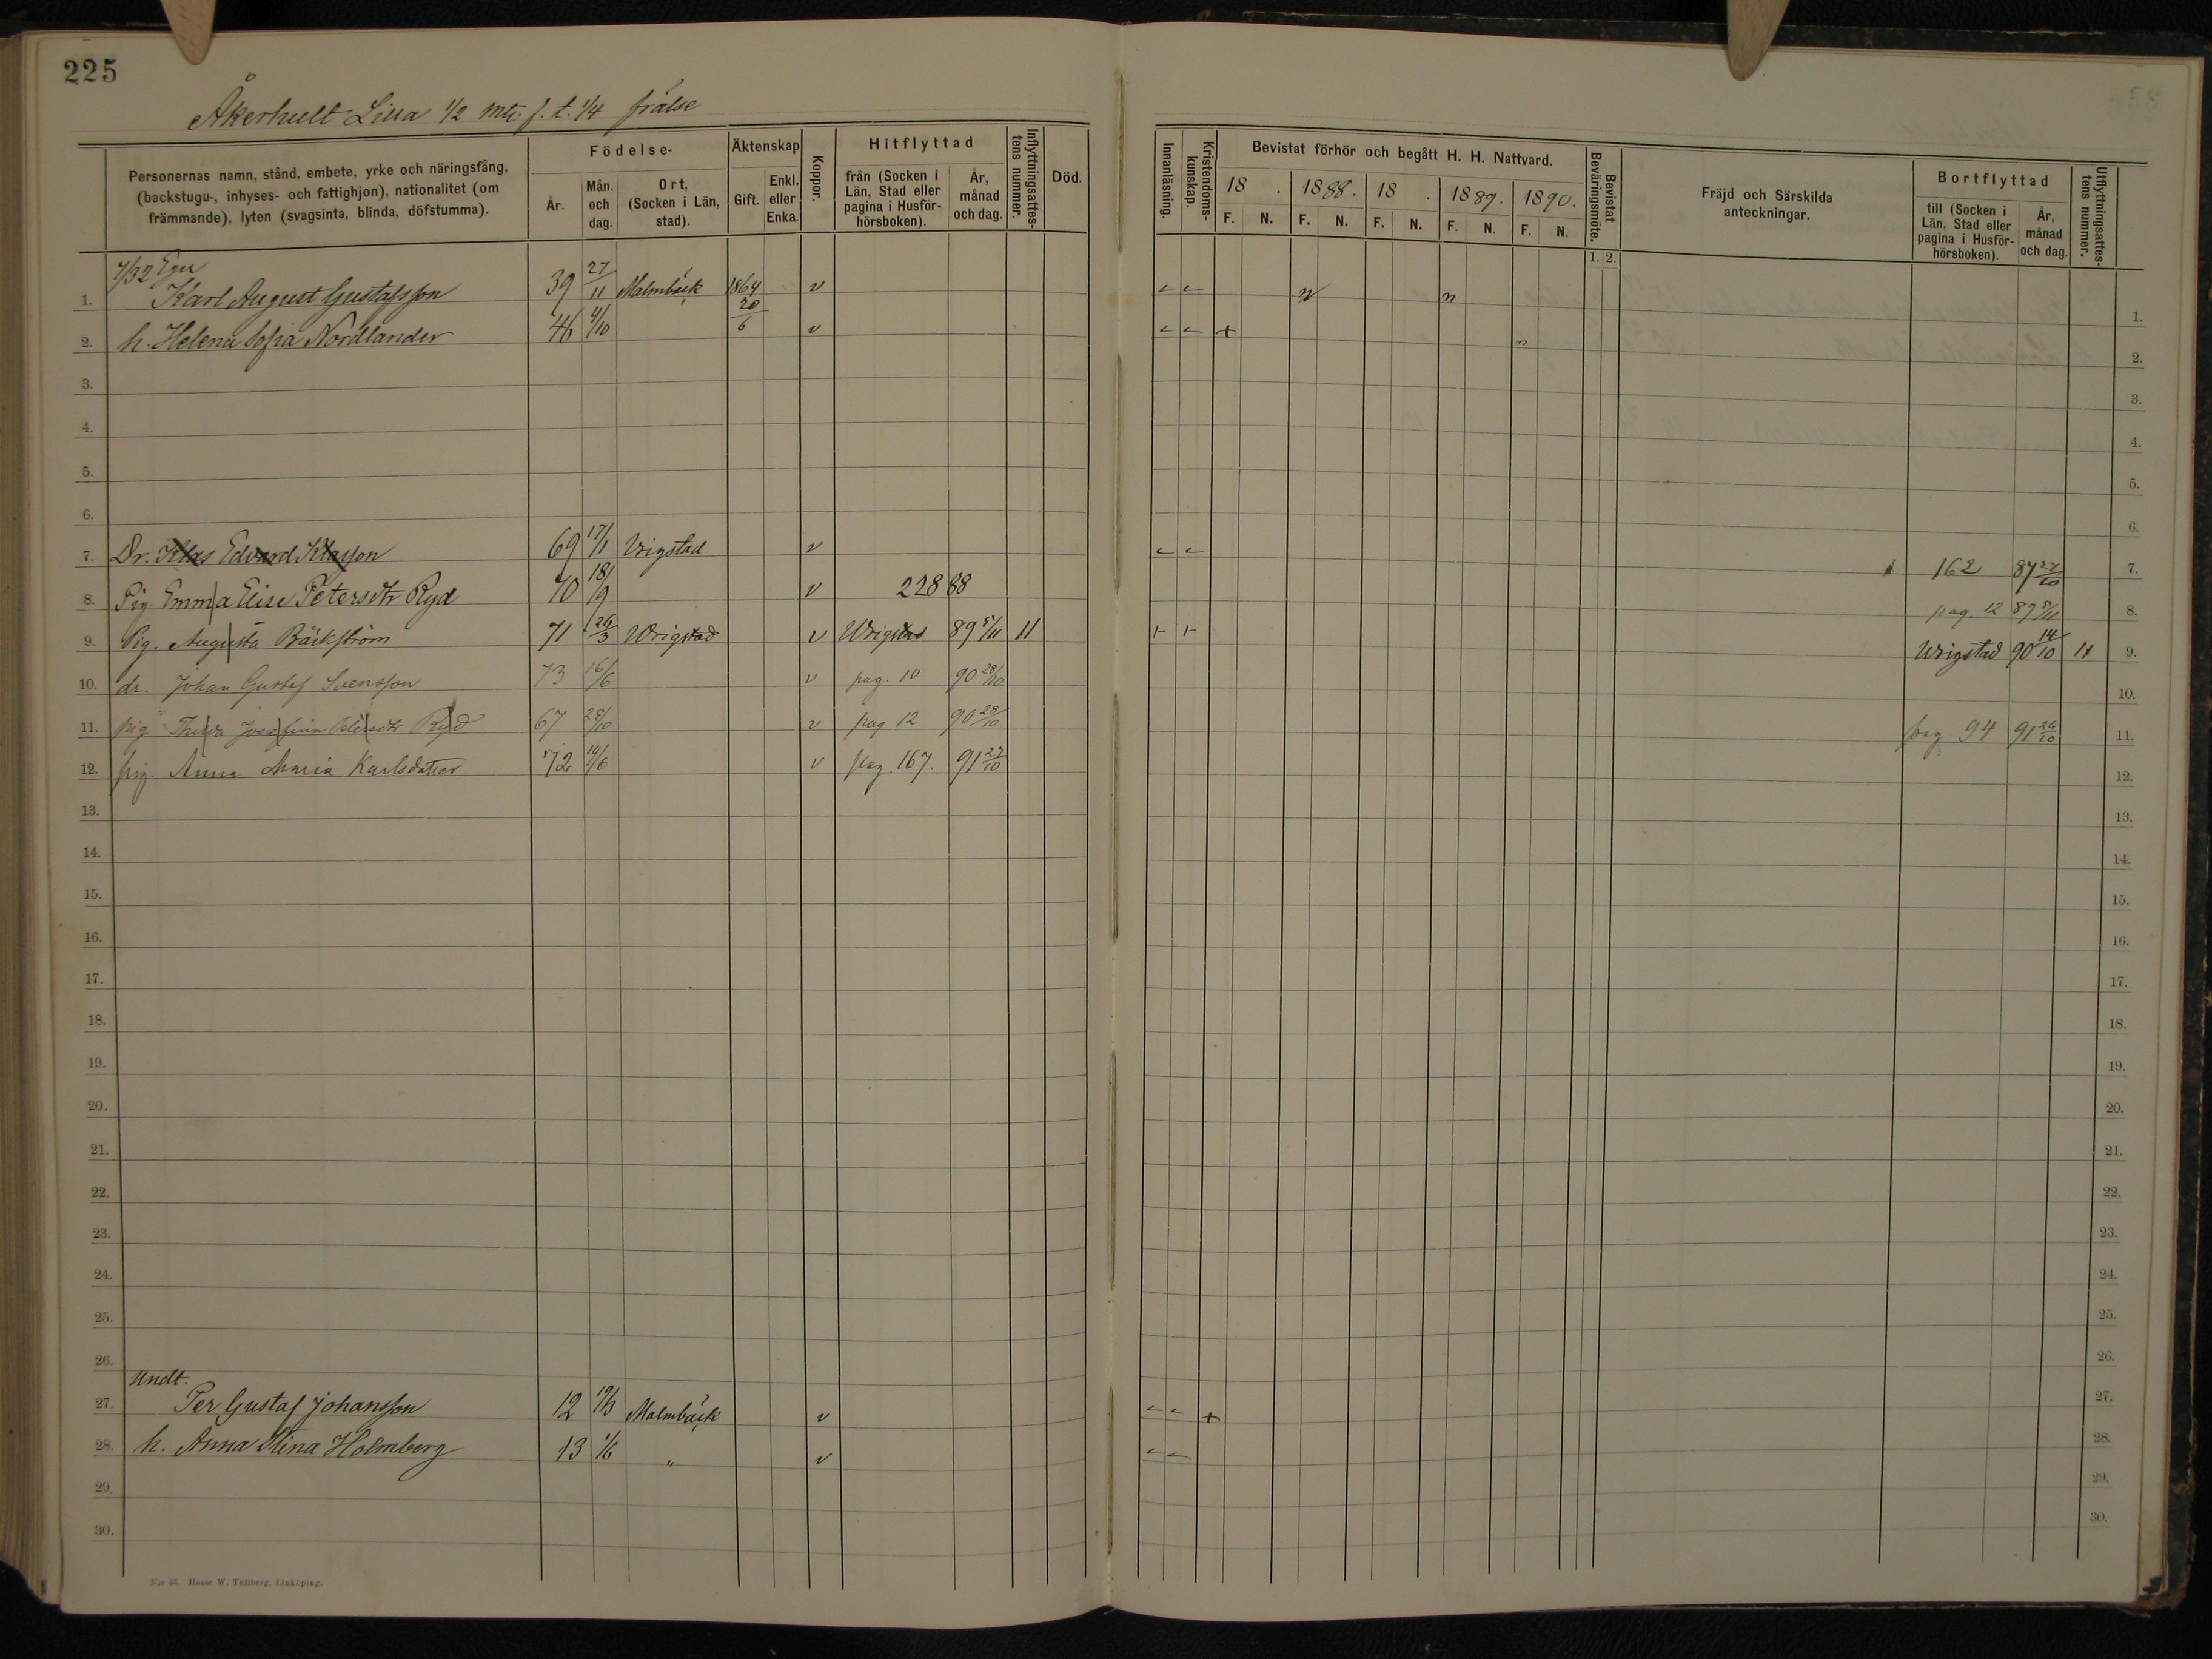 225
Åkerhult Lilla 1/2 mtl. f. t. 1/4 frälse
Personernas namn, stånd, embete, yrke och näringsfång, (backstugu-, inhyses- och fattighjon), nationalitet (om främmande), lyten (svagsinta, blinda, döfstumma).
Födelse-
År.
Mån. och dag.
Ort, (Socken i Län, stad).
Äktenskap
Gift.
Enkl. eller Enka.
Koppor.
Hitflyttad
från (Socken i Län, Stad eller pagina i Husförhörsboken).
År, månad och dag.
Inflyttningsattestens nummer.
Död.
Innanläsning.
Kristendomskunskap.
Bevistat förhör och begått H. H. Nattvard.
18 . 1888. 18 . 1889. 1890.
F. N. F. N. F. N. F. N. F. N.
Bevistat Beväringsmöte.
1. 2.
Fräjd och Särskilda anteckningar.
Bortflyttad
till (Socken i Län, Stad eller pagina i Husförhörsboken).
År, månad och dag.
Utflyttningsattestens nummer.
7/32 Eger
1. Karl August Gustafsson 39 27/11 Malmbäck 1864 20/6 v n n 1.
2. h. Helena Sofia Nordlander 46 4/10 v + n 2.
3. 3.
4. 4.
5. 5.
6. 6.
7. Dr. Klas Edvard Klasson 69 17/1 Vrigstad v 162 87 27/10 7.
8. Pig. Emma Elise Petersdtr Ryd 70 18/9 v 228 88 pag. 12 89 5/11 8.
9. Pig. Augusta Bäckström 71 26/3 Wrigstad v Wrigstad 89 5/11 11 Wrigstad 90 14/10 11 9.
10. dr. Johan Gustaf Svensson 73 16/6 v pag. 10 90 28/10 10.
11. pig Josefina Ryd 67 28/10 v pag 12 90 28/10 pag. 94 91 26/10 11.
12. pig. Anna Maria Karlsdotter 72 19/6 v pag. 167. 91 27/10 12.
13. 13.
14. 14.
15. 15.
16. 16.
17. 17.
18. 18.
19. 19.
20. 20.
21. 21.
22. 22.
23. 23.
24. 24.
25. 25.
26. 26.
Undt.
27. Per Gustaf Johansson 12 19/3 Malmbäck v + 27.
28. h. Anna Stina Holmberg 13 1/6 " v 28.
29. 29.
30. 30.
N:o 36. Hasse W. Tullberg, Linköping.